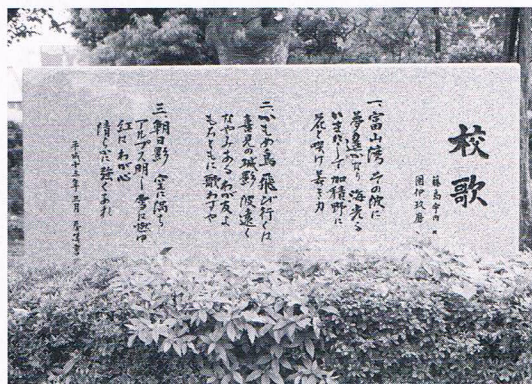 校歌
藤島宇内
團伊玖磨
一、富山湾 その波に
夢は遥かなり 海光る
いまわれして加積野に
花と咲け若き力
二、かもめ鳥 飛び行くは
喜見の城影 波遠く
なやみあるわが友よ
もろともに歌わずや
三、朝日影 空に満ち
アルプス明し 雪に燃ゆ
紅は わが心
清らに強くあれ
平成十三年三月